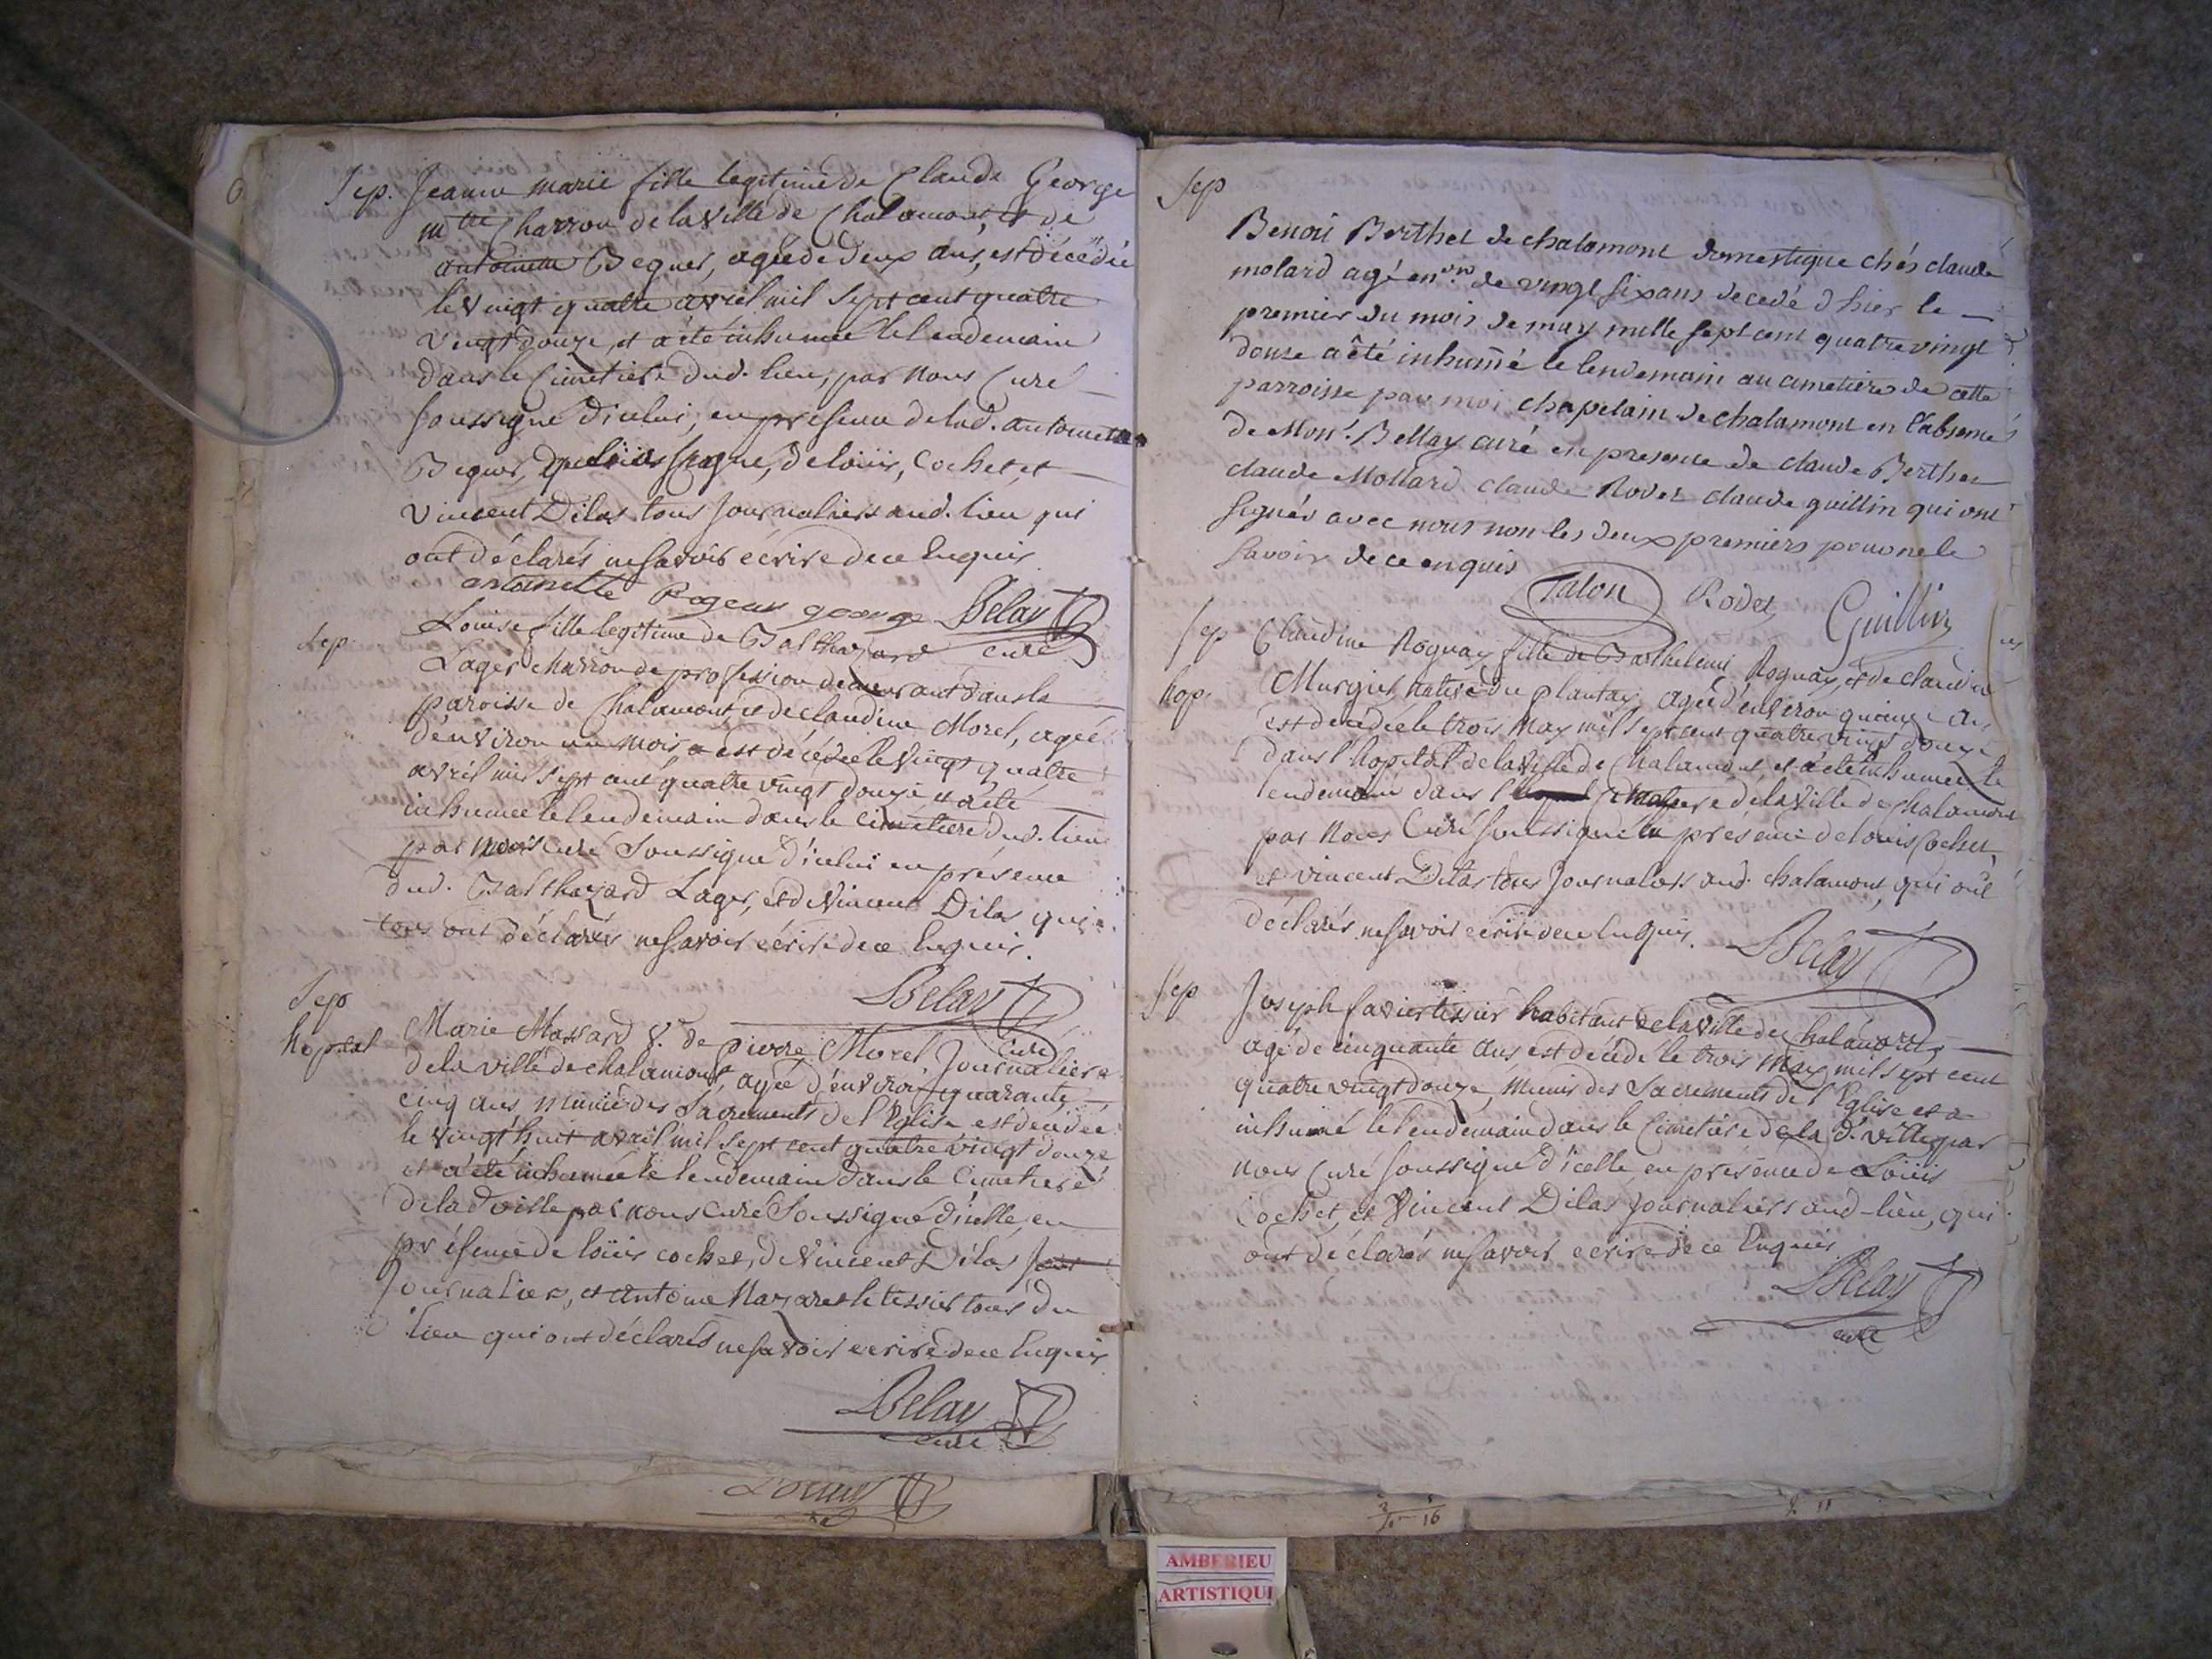 Sep. Jeanne marie fille legitime de Claude George
mtre Charron de la ville de Chalamont, et de
antoinette Beguer, agée de deux ans, est décédée
le vingt quatre avril mil sept cent quatre
vingt douze, et a été inhumée le lendemain
dans le Cimetiere dud. lieu, par nous Curé
soussigné d'icelui, en presence de lad. antoinette
Beguer, de loüis, Cochet, et
vincent Dilas tous Journaliers aud. lieu qui
ont déclarés ne savoir écrire de ce Enquis.
antoinette george Belay
curé
Sep Louise fille legitime de Balthazard
Lager charron de profession demeurant dans la
paroisse de Chalamont, et de claudine Morel, agée
d'environ un mois est décédée le vingt quatre
avril mil sept cent quatre vingt douze et a été
inhumée le lendemain dans le cimetiere dud. lieu
par nous curé soussigné d'icelui en présence
dud. Balthazard Lager, et de Vincent Dilas qui
tous ont déclarés ne savoir écrire de ce Enquis.
Belay
curé
Sep
hopital Marie Massard v.e de pierre Morel Journaliere
de la ville de chalamont, agée d'environ quarante
cinq ans, munie des Sacrements de l'Eglise est décédée
le vingt huit avril mil sept cent quatre vingt douze
et a été inhumée le lendemain dans le Cimetiere
de la d ville par nous curé Soussigné d'icelle, en
présence de loüis cochet, de Vincent Dilas
Journalier, et antoine Nazareth tessier tous du
lieu qui ont déclarés ne savoir ecrire de ce Enquis
Belay
curé
Sep
Benoit Berthet de chalamont domestique chés claude
molard agé en.on de vingt six ans decedé d'hier le
premier du mois de may mille sept cent quatre vingt
douse a été inhumé le lendemain au cimetiere de cette
parroisse par moi chapelain de chalamont en l'absence
de Mons.r Bellay curé en presence de claude Berthet
claude Mollard claude Rodet claude guillin qui ont
signés avec nous non les deux premiers pour ne le
savoir de ce enquis
Talon Rodet Guillin
Sep Claudine Roguay fille de Barthelemi Roguay, et de claudine
hop. Murgier, native du plantay, agée d'environ quinze ans
est décédée le trois May mil sept cent quatre vingt douze
dans l'hopital de la Ville de Chalamont, et a été inhumée le
lendemain dans le Cimetiere de la Ville de chalamont
par nous Curé soussigné en présence de louis Cochet,
et vincent Dilas tous Journaliers aud. chalamont, qui ont
déclarés ne savoir écrire de ce Enquis.
Belay
Sep Joseph favier tissier habitant de la ville de Chalamont,
agé de cinquante ans, est décédé le trois May mil sept cent
quatre vingt douze, Munis des Sacrements de l'Eglise et a
inhumé le lendemain dans le Cimetiere de la d. ville par
nous Curé soussigné d'icelle, en présence de Loüis
Cochet, et Vincent Dilas Journaliers aud-lieu, qui
ont déclarés ne savoir ecrire de ce Enquis.
Belay
curé
AMBERIEU
ARTISTIQU